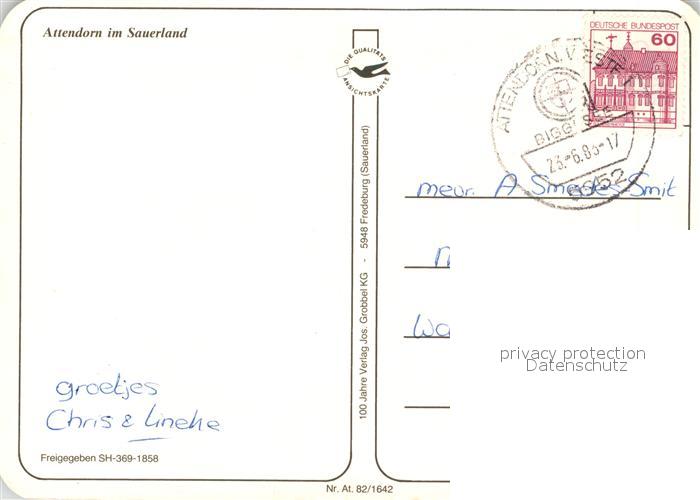 Attendorn im Sauerland
DIE QUALITÄTS
ANSICHTSKARTE
DEUTSCHE BUNDESPOST
60
BIGGESEE
23.-6.83-17
5952
mevr. A Smedes Smit
privacy protection
Datenschutz
groetjes
Chris & Lineke
Freigegeben SH-369-1858
100 Jahre Verlag Jos. Grobbel KG - 5948 Fredeburg (Sauerland)
Nr. At. 82/1642